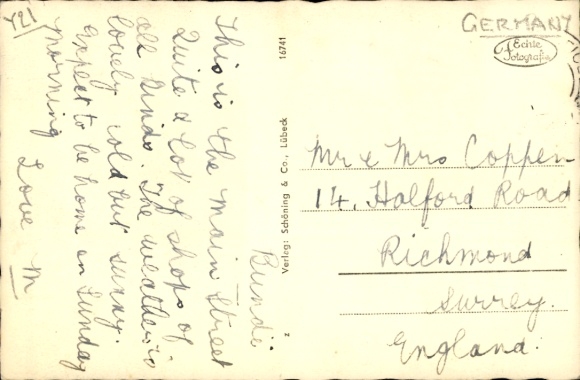 Y21
GERMANY
Echte
Fotografie
Bunde
This is the main street
Quite a lot of shops of
all kinds. The weather is
lovely cold but sunny.
Expect to be home on Sunday
morning
Love M
16741
Verlag: Schöning & Co., Lübeck
Mr & Mrs Coppen
14, Halford Road
Richmond
Surrey.
England.